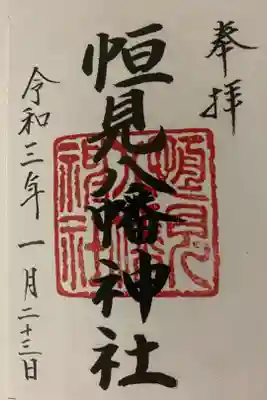 奉拝
恒見八幡神社
令和三年一月二十三日
恒見八幡神社